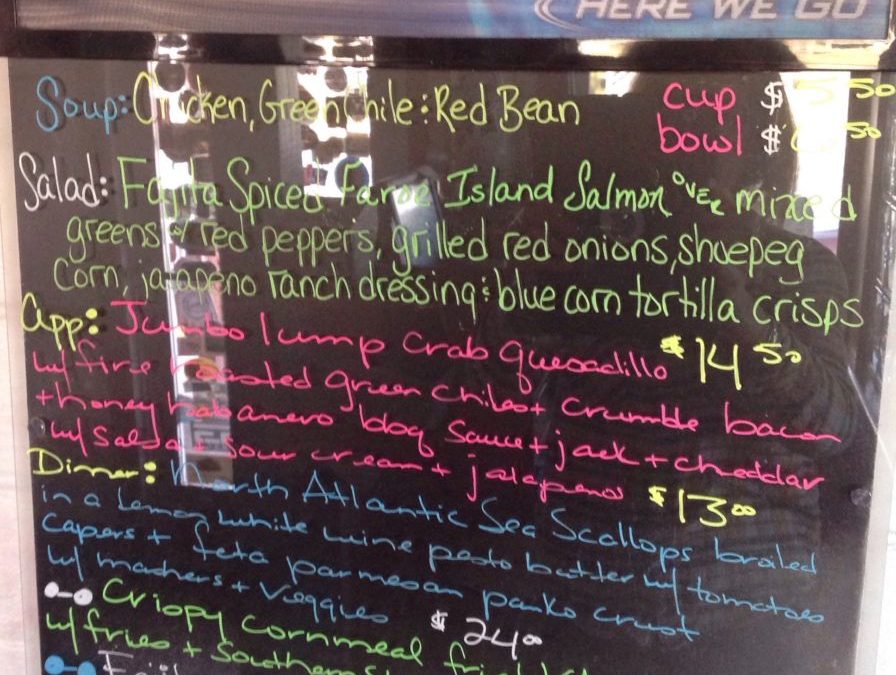 HERE WE GO
Soup: Chicken, Green Chile : Red Bean cup $5.50
bowl $ 50
Salad: Fajita Spiced Faroe Island Salmon OVER mixed
greens w/ red peppers, grilled red onions, shoepeg
corn, jalapeno ranch dressing : blue corn tortilla crisps
$14 50
App: Jumbo lump crab quesadilla
w/ fire roasted green chiles + crumble bacon
+ honey habanero bbq sauce + jack + cheddar
w/ salsa + sour cream + jalapenos $13 00
Dinner: North Atlantic Sea Scallops broiled
in a lemon white wine pesto butter w/ tomatoes
capers + feta parmesan panko crust
w/ mashers + veggies $24 00
Crispy cornmeal fried
w/ fries + Southern